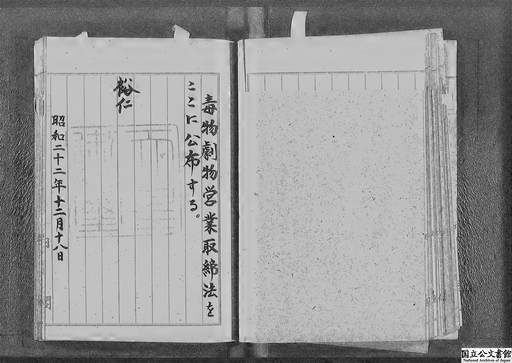 毒物劇物営業取締法を
ここに公布する。
裕仁
昭和二十二年十二月十八日
国立公文書館
National Archives of Japan